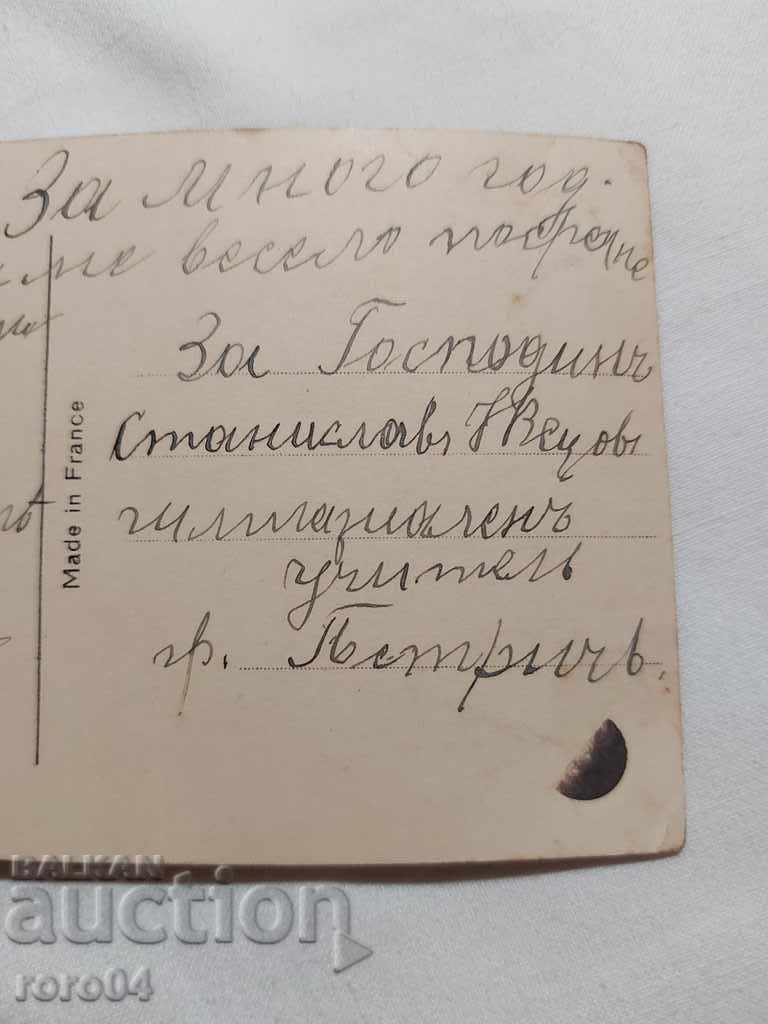 За много год.
весело
За Господинъ
Станиславъ
гимназиаленъ
учитель
гр. Петричъ.
Made in France
BALKAN
auction
roro04